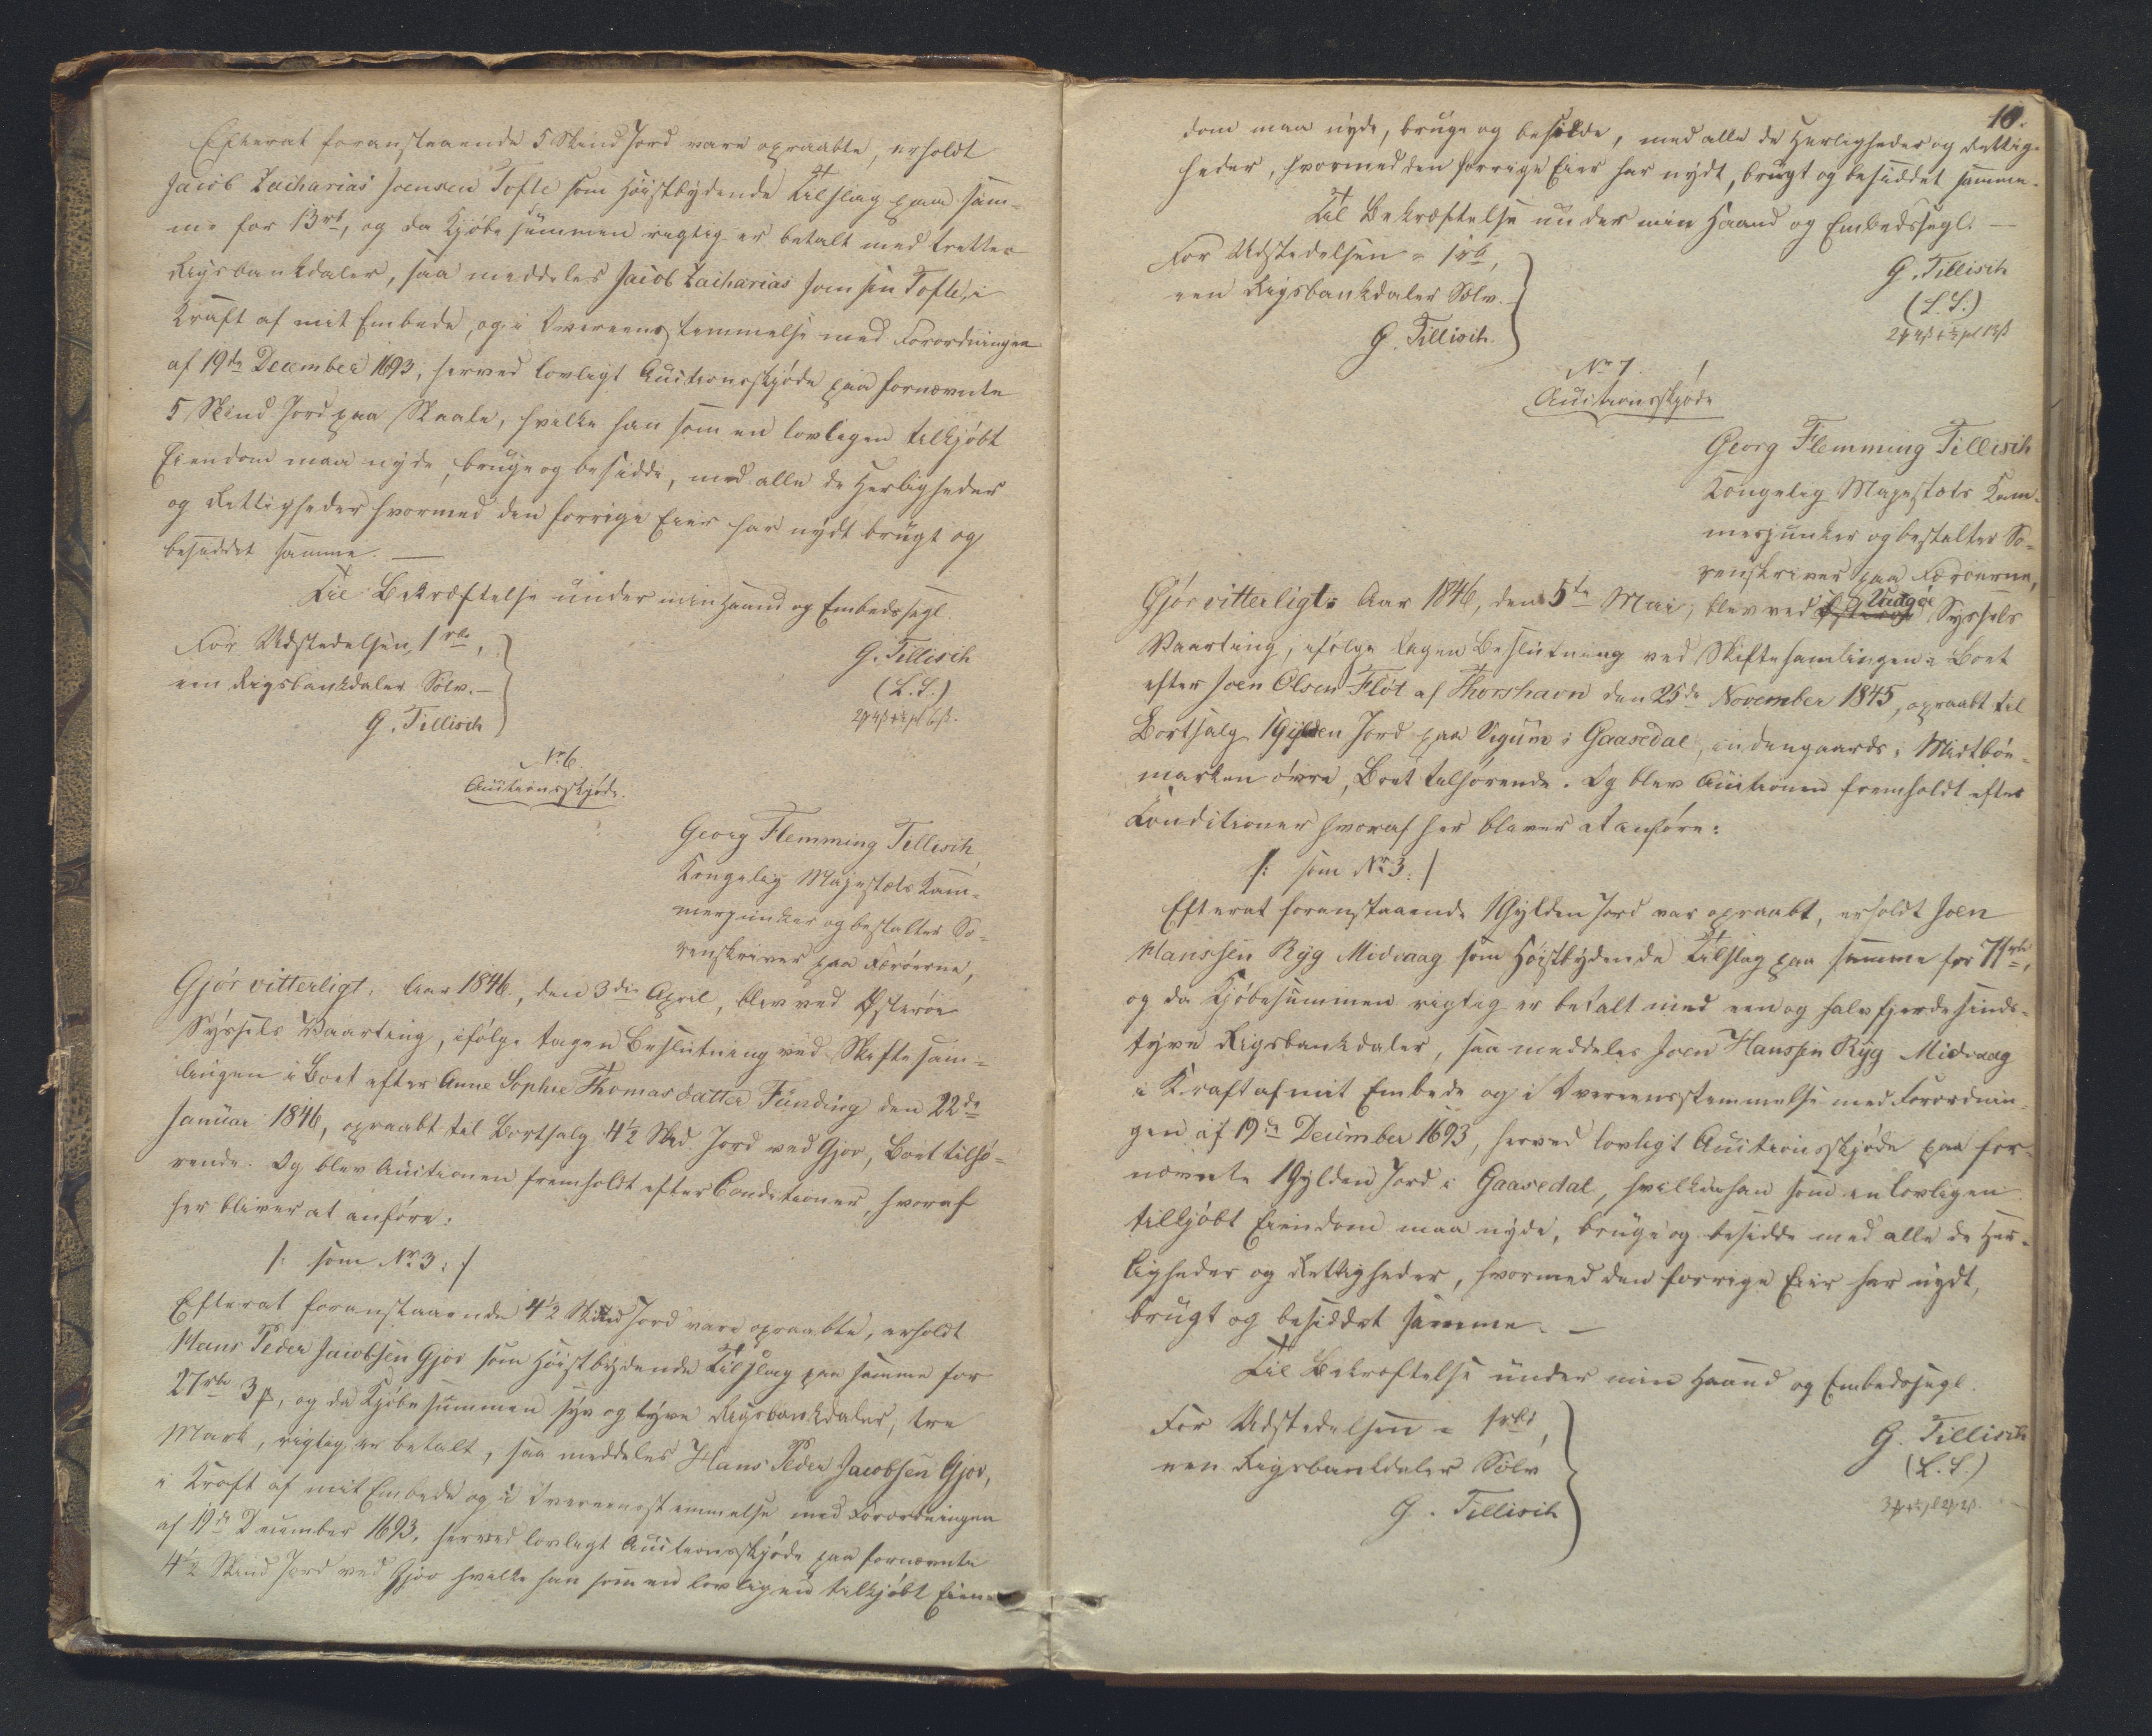 Efterat foranstaaende 5 Skind Jord vare opraabte, erholdt
Jacob Zacharias Joensen Tofte som Høistbydende Tilslag paa sam-
me for 13 rb, og da Kjøbesummen rigtig er betalt med tretten
Rigsbankdaler, saa meddeles Jacob Zacharias Joensen Tofte, i
Kraft af mit Embede, og i Overeensstemmelse med Forordningen
af 19de December 1693, herved lovligt Auctionsskjøde paa fornævnte
5 Skind Jord paa Skaale, hvilke han som en lovligen tilkjøbt
Eiendom maa nyde, bruge og besidde, med alle de Herligheder
og Rettigheder hvormed den forrige Eier har nydt brugt og
besiddet samme. —
Til Bekræftelse under min Haand og Embedssegl.
For Udstedelsen, 1 rbd,
een Rigsbankdaler Sølv. —
G. Tillisch
G. Tillisch
(L. S.)
No 6.
Auctionsskjøde.
Georg Flemming Tillisch,
Kongelig Majestæts Kam-
merjunker og bestalter So-
renskriver paa Færøerne,
Gjør vitterligt: Aar 1846, den 3die April, blev ved Østerøe
Syssels Vaarting, ifølge tagen Beslutning ved Skiftesam-
lingen i Boet efter Anne Sophie Thomasdatter Funding den 22de
Januar 1846, opraabt til Bortsalg 4½ Skd. Jord ved Gjov, Boet tilhø-
rende. Og blev Auctionen fremholdt efter Conditioner, hvoraf
her bliver at anføre:
/: som No 3. :/
Efterat foranstaaende 4½ Skind Jord vare opraabte, erholdt
Hans Peder Jacobsen Gjov som Høistbydende Tilslag paa samme for
27 rbd 3 ₻, og da Kjøbesummen syv og tyve Rigsbankdaler, tre
Mark, rigtig er betalt, saa meddeles Hans Peder Jacobsen Gjov,
i Kraft af mit Embede og i Overeensstemmelse med Forordningen
af 19de December 1693, herved lovligt Auctionsskjøde paa fornævnte
4½ Skind Jord ved Gjov hvilke han som en lovligen tilkjøbt Eien-
10.
dom maa nyde, bruge og besidde, med alle de Herligheder og Rettig-
heder, hvormed den forrige Eier har nydt, brugt og besiddet samme.
Til Bekræftelse under min Haand og Embedssegl. —
For Udstedelsen = 1 rbd,
een Rigsbankdaler Sølv.
G. Tillisch.
G. Tillisch
(L. S.)
No 7.
Auctionsskjøde
Georg Flemming Tillisch
Kongelig Majestæts Kam-
merjunker og bestalter So-
renskriver paa Færøerne,
Gjør vitterligt: Aar 1846, den 5te Mai, blev ved Østerøe Vaagøe Syssels
Vaarting, ifølge tagen Beslutning ved Skiftesamlingen i Boet
efter Joen Olsen Fløt af Thorshavn den 25de November 1845, opraabt til
Bortsalg 1 Gylden Jord paa Vigum i Gaasedal, indengaards i Midtbøe-
marken øvre, Boet tilhørende. Og blev Auctionen fremholdt efter
Conditioner hvoraf her bliver at anføre:
/: som No 3. :/
Efterat foranstaaende 1 Gylden Jord var opraabt, erholdt Joen
Hanssen Ryg Midvaag som Høistbydende Tilslag paa samme for 71 rbd,
og da Kjøbesummen rigtig er betalt med een og halvfjerdesinds-
tyve Rigsbankdaler, saa meddeles Joen Hanssen Ryg Midvaag
i Kraft af mit Embede og i Overeensstemmelse med Forordnin-
gen af 19de December 1693, herved lovligt Auctionsskjøde paa for-
nævnte 1 Gylden Jord i Gaasedal, hvilken han som en lovligen
tilkjøbt Eiendom maa nyde, bruge og besidde med alle de Her-
ligheder og Rettigheder, hvormed den forrige Eier har nydt,
brugt og besiddet samme. —
Til Bekræftelse under min Haand og Embedssegl.
For Udstedelsen = 1 rbd,
een Rigsbankdaler Sølv
G. Tillisch
G. Tillisch
(L. S.)